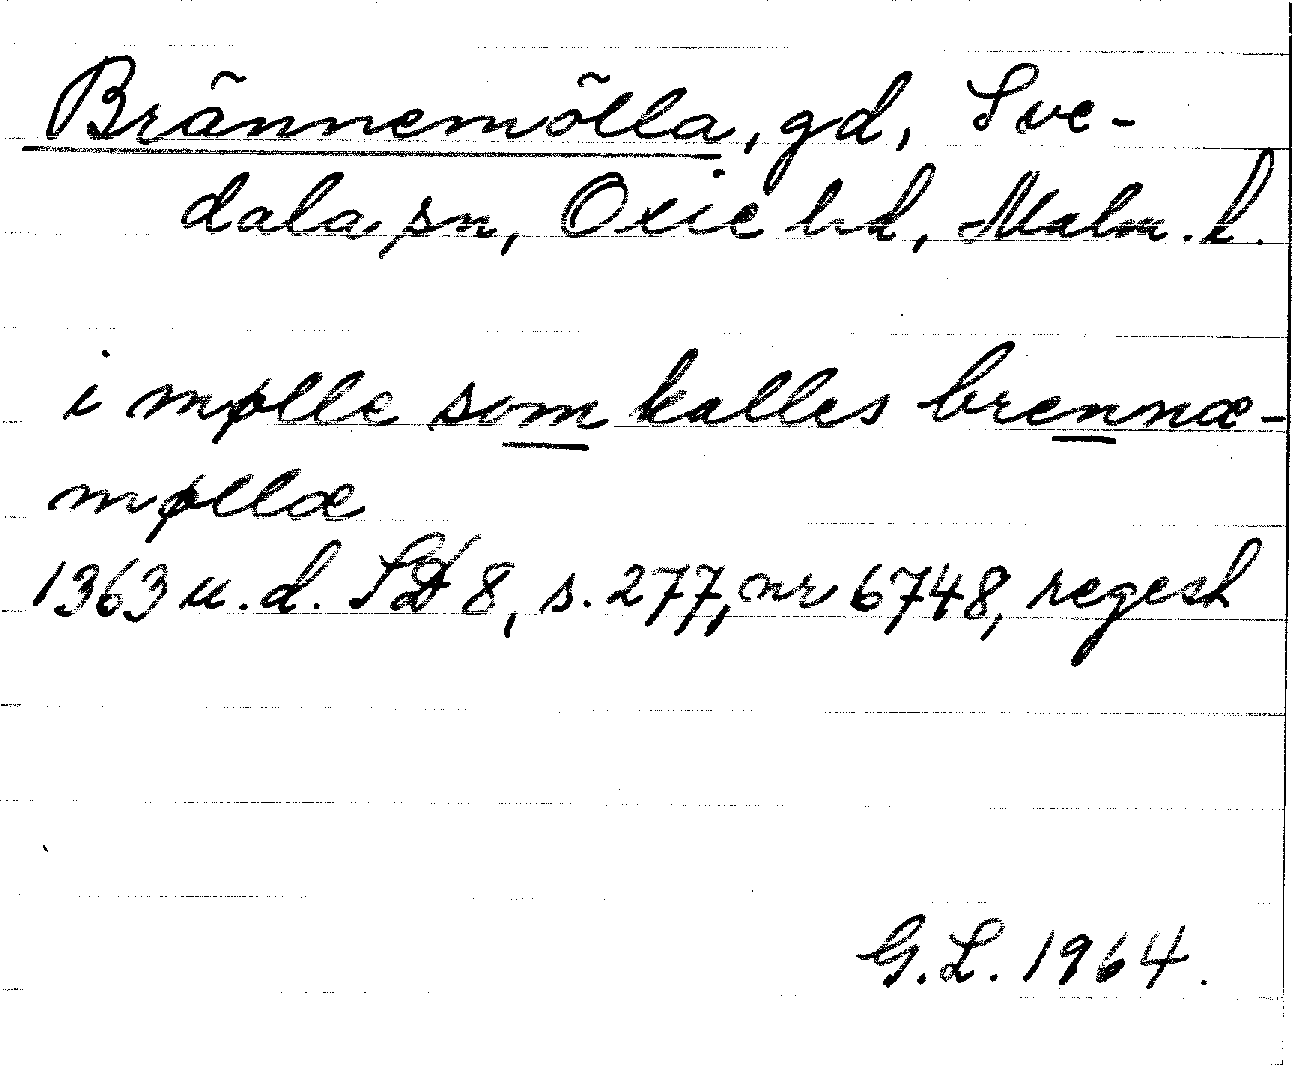 Brännemölla, gd, Sve-
dala sn, Oxie hd, Malm. l.
i mølle som kalles brennæ-
møllæ
1363 u. d. SD 8, s. 277, nr 6748, regest
G. L. 1964.